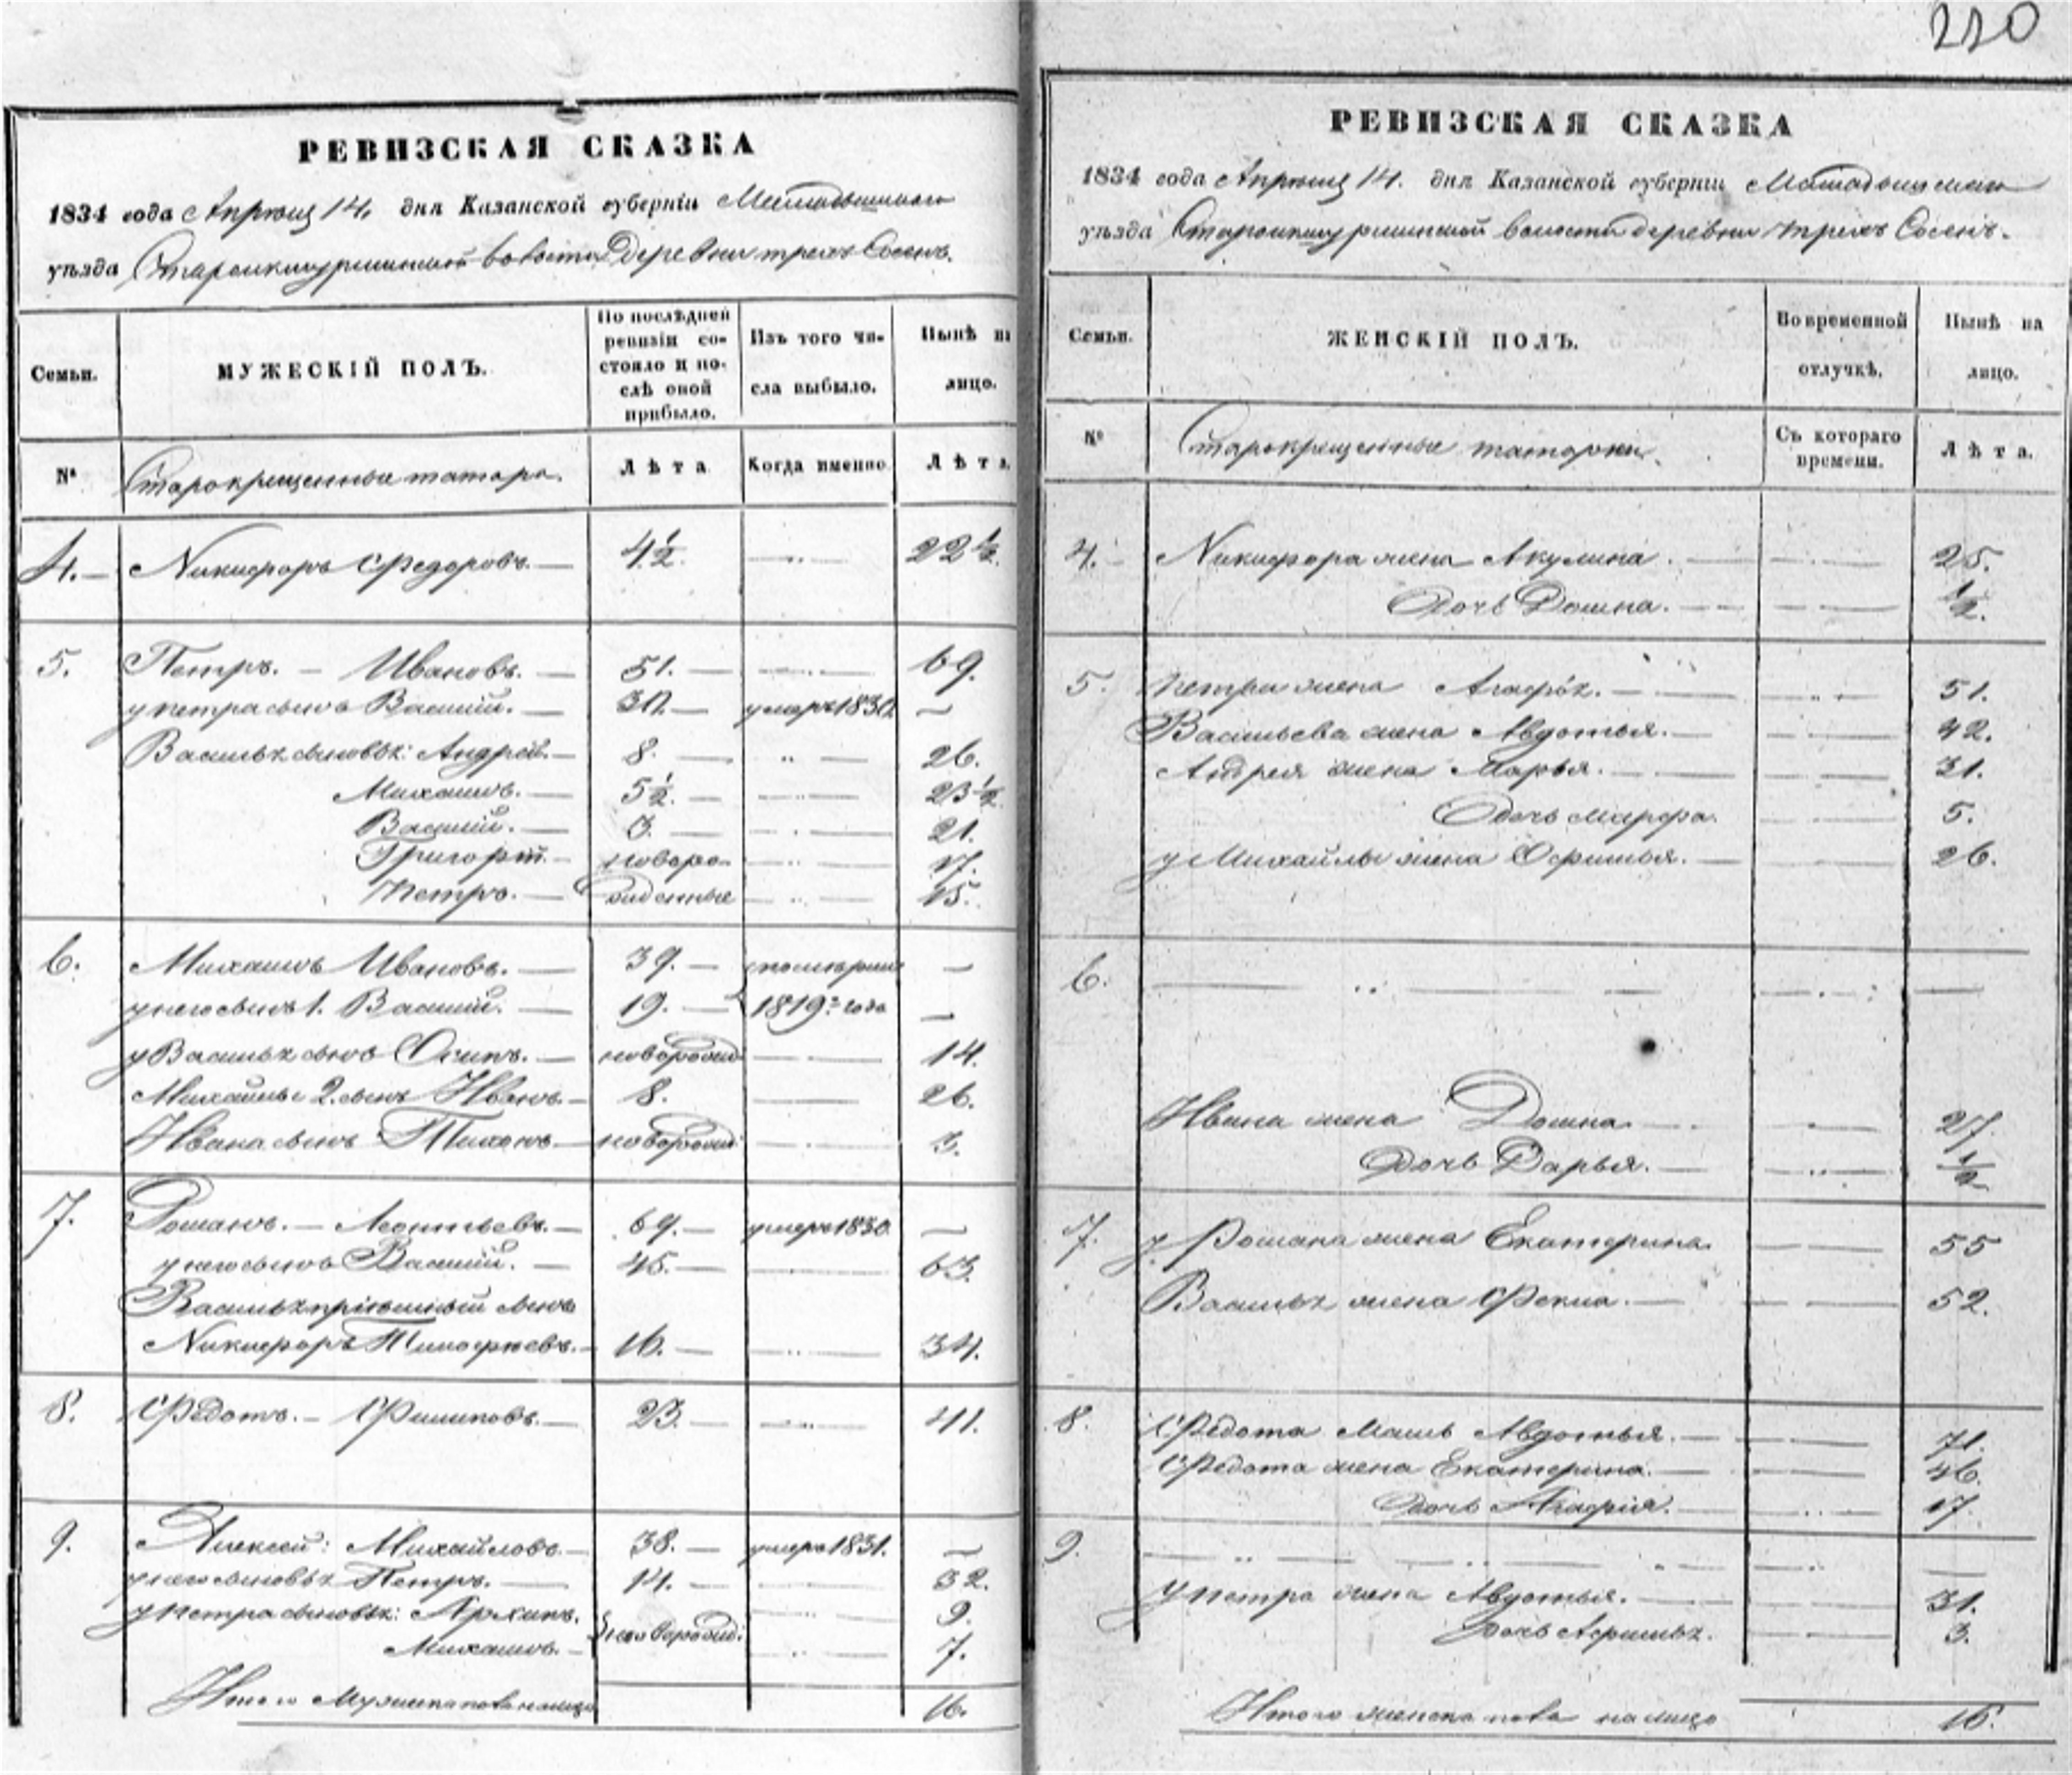 220
РЕВИЗСКАЯ СКАЗКА
1834 года Апреля 14. дня Казанской губерніи Мамадышскаго
уѣзда волости Деревни трехъ Сосенъ.
Семьи. МУЖЕСКІЙ ПОЛЪ. По послѣдней ревизіи состояло и послѣ оной прибыло. Изъ того числа выбыло. Нынѣ на лицо.
№ Старокрещенные татара. Лѣта Когда именно Лѣта
4. Никифоръ Федоровъ. 4½ 22½
5. Петръ. Ивановъ. 51. 69.
у петра сынъ Василій. 30. умеръ 1830. —
Василья сыновья: Андрей. 8. 26.
Михаило. 5½. 23½
Василій. 3. 21.
Григорій. новоро- 17.
Петръ. жденные 15.
6. Михаило Ивановъ. 39. —
у него сынъ 1. Василій. 19. 1819го года —
у Василья сынъ Осипъ. новорожд 14.
Михайлы 2. сынъ Иванъ. 8. 26.
Ивана сынъ Тихонъ новорожд: 3.
7. Романъ. Леонтьевъ. 69. умеръ 1830. —
у него сынъ Василій. 45. 63.
Василья пріемный сынъ
Никифоръ Тимофеевъ. 16. 34.
8. Федотъ. Филиповъ. 23. 41.
9. Алексей: Михайловъ. 38. умеръ 1831. —
у него сыновья Петръ. 14. 32.
у петра сыновья: Архипъ. новорожд: 9.
Михаило. 7.
Итого Мужеска пола налицо 16.
РЕВИЗСКАЯ СКАЗКА
1834 года Апреля 14. дня Казанской губерніи Мамадышскаго
уѣзда волости деревни трехъ Сосенъ.
Семьи. ЖЕНСКІЙ ПОЛЪ. Во временной отлучкѣ. Нынѣ на лицо.
№ Старокрещенные татарки. Съ котораго времени. Лѣта.
4. Никифора жена Акулина. 25.
Дочь Домна. ½.
5. Петра жена Агафья. 51.
Васильева жена Авдотья. 42.
Андрея жена Марья. 31.
Дочь марфа. 5.
у Михайлы жена Офимья. 26.
6.
Ивана жена Домна. 27.
Дочь Дарья. ½
7. у Романа жена Екатерина. 55
Василья жена Фекла. 52.
8. Федота Мать Авдотья. 71.
Федота жена Екатерина. 46.
Дочь Агафія. 17.
9.
У петра жена Авдотья. 31.
Дочь Афимья. 3.
Итого женска пола налицо 16.